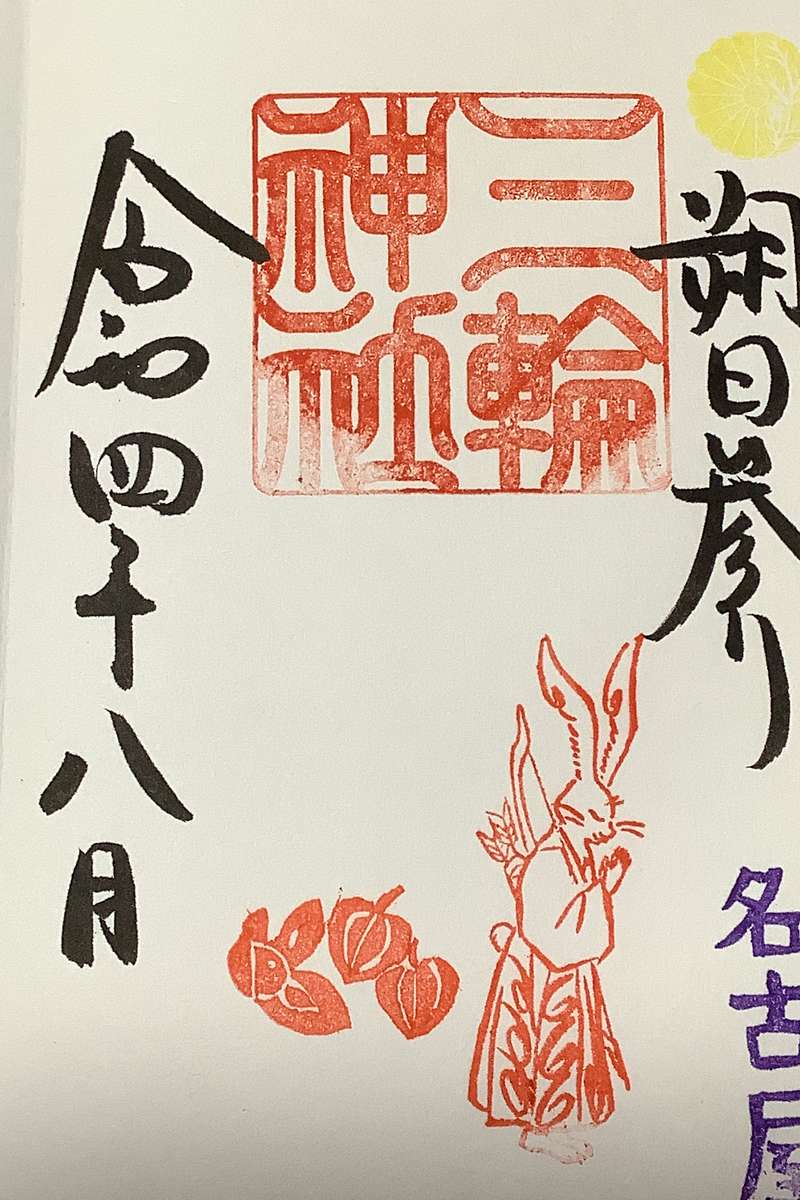 朔日参り
名古屋
三輪
神社
令和四年八月